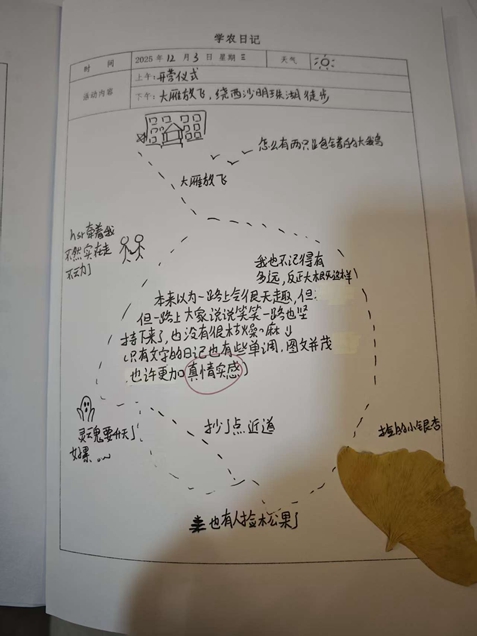 学农日记
时 间 2025年12月3日 星期三 天气
活动内容
上午:开营仪式
下午:大雁放飞,绕西沙明珠湖徒步
怎么有两只
大雁放飞
hsr牵着我
不然实在走
不动了
我也不记得有
多远,反正大概是这样
本来以为一路上会很无趣,但
但一路上大家说说笑笑一路也坚
持下来了,也没有很枯燥嘛
只有文字的日记也有些单调,图文并茂
也许更加真情实感
灵魂要升天了
好累...
抄了点近道
捡的小银杏
也有人捡松果了